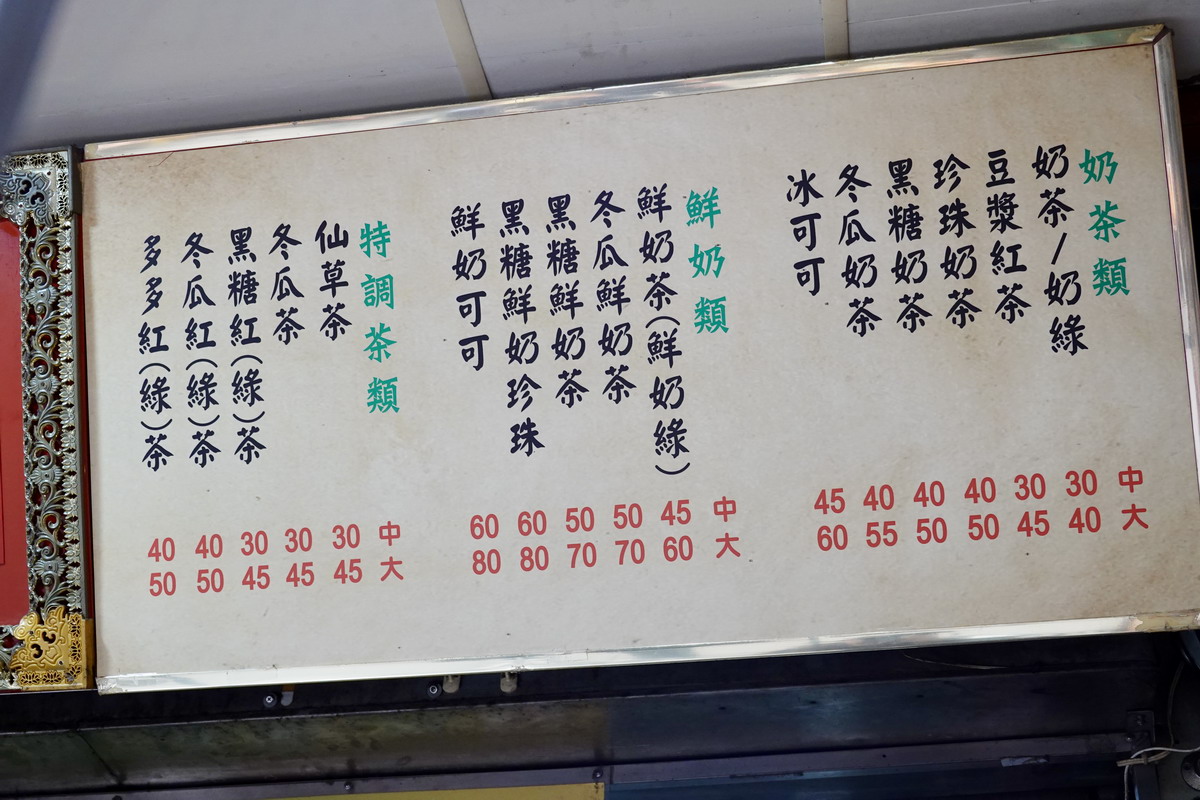 奶茶類
奶茶/奶綠
豆漿紅茶
珍珠奶茶
黑糖奶茶
冬瓜奶茶
冰可可
中 大
30 40
30 45
40 50
40 50
40 55
45 60
鮮奶類
鮮奶茶(鮮奶綠)
冬瓜鮮奶茶
黑糖鮮奶茶
黑糖鮮奶珍珠
鮮奶可可
中 大
45 60
50 70
50 70
60 80
60 80
特調茶類
仙草茶
冬瓜茶
黑糖紅(綠)茶
冬瓜紅(綠)茶
多多紅(綠)茶
中 大
30 45
30 45
30 45
40 50
40 50